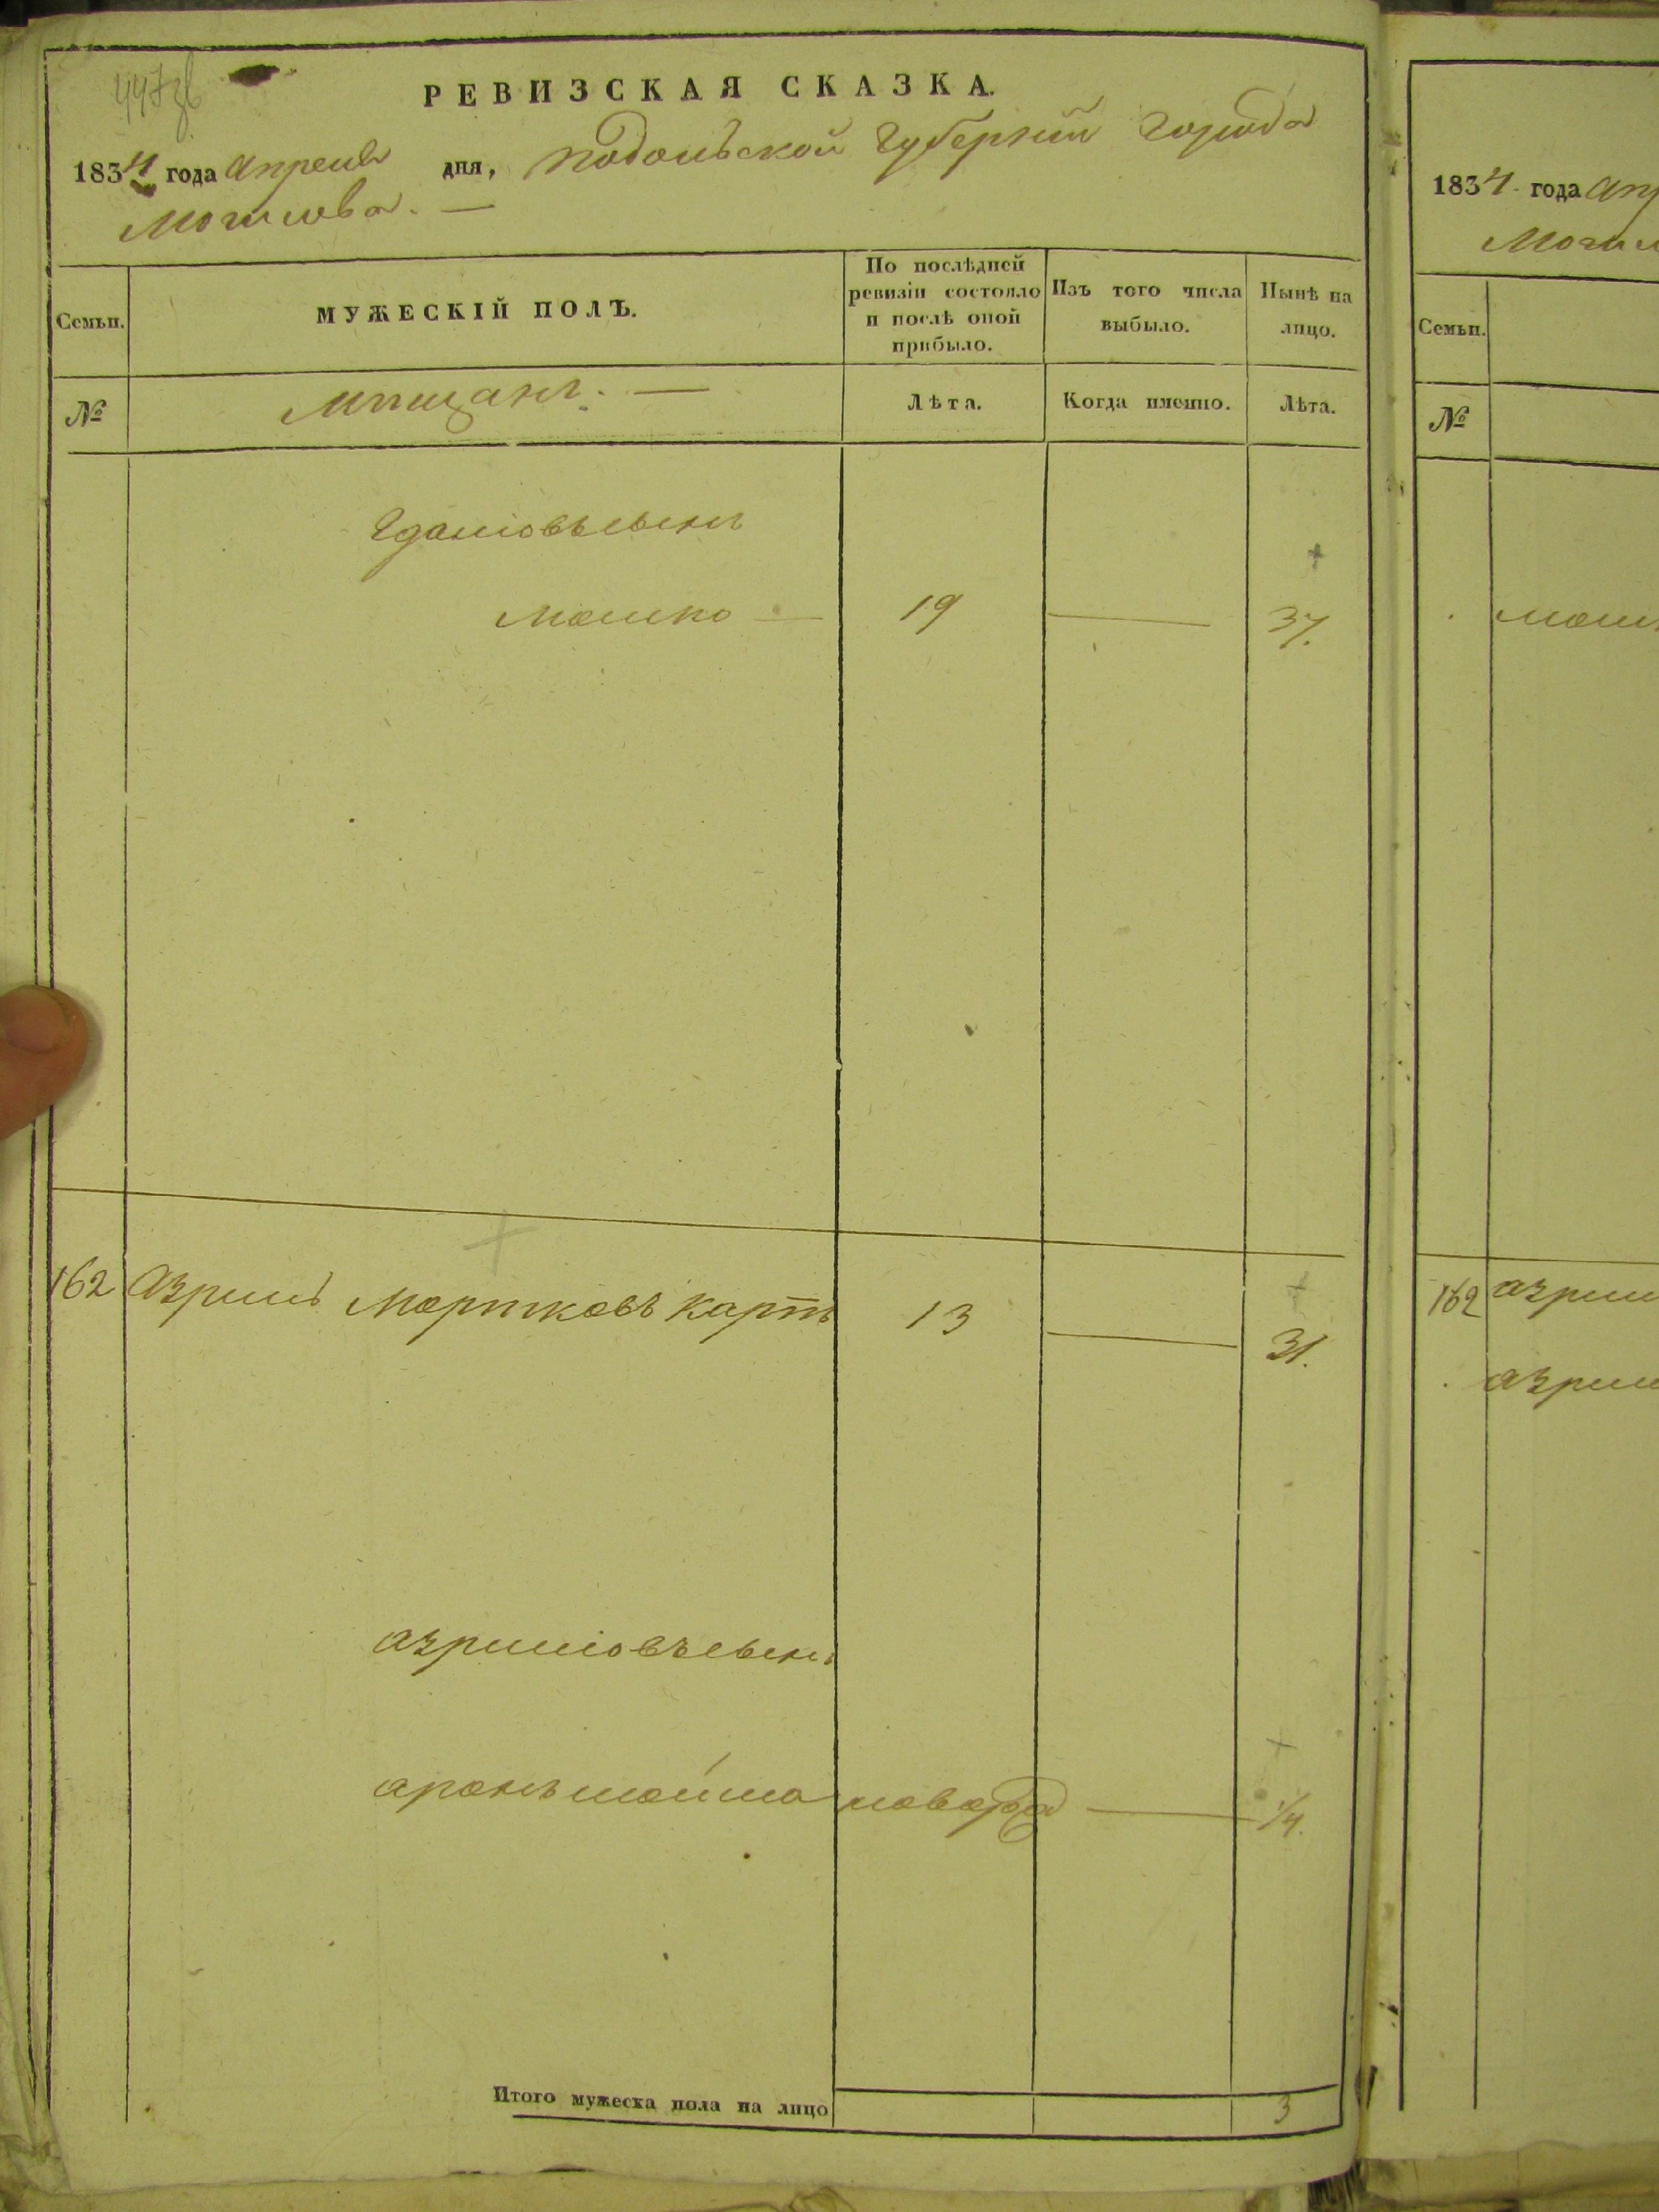 447 зв
РЕВИЗСКАЯ СКАЗКА.
1834 года апреля дня, Подольской Губернии города
Могилева. —
Семьи.
МУЖЕСКІЙ ПОЛЪ.
По послѣдней ревизіи состояло и послѣ оной прибыло.
Изъ того числа выбыло.
Нынѣ на лицо.
№
Мѣщанъ. —
Лѣта.
Когда именно.
Лѣта.
сынъ
Мошко — 19 — 37.
162 Азриль Мортковъ Картъ 13 — 31.
Азриліовъ сынъ
Аронъ Шойма новорож — 1/4.
Итого мужеска пола на лицо 3
1834 года Апр
Могил
Семьи.
№
Мош
162 Азрил
Азрил